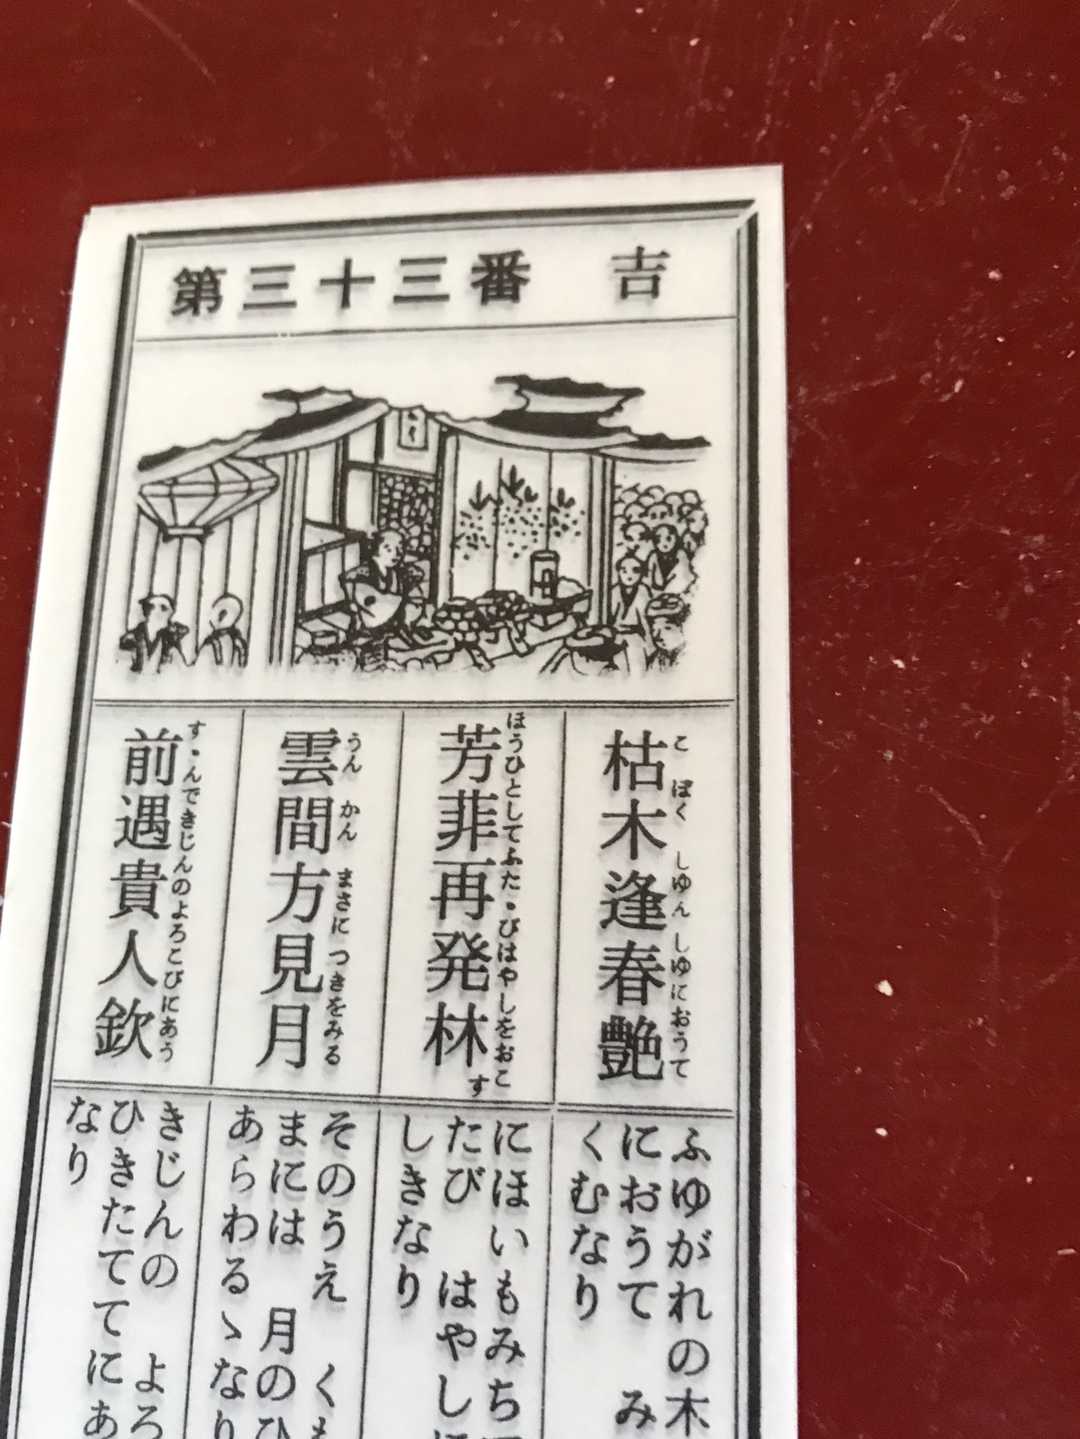 第三十三番 吉
枯木逢春艶
こぼくしゆんしゆにおうて
芳菲再発林
ほうひとしてふた・びはやしをおこす
雲間方見月
うんかんまさにつきをみる
前遇貴人欽
す・んできじんのよろこびにあう
ふゆがれの木
におうて み
くむなり
にほいもみち
たび はやし
しきなり
そのうえ く
まには 月のひ
あらわるゝなり
きじんの よろ
ひきたててにあ
なり